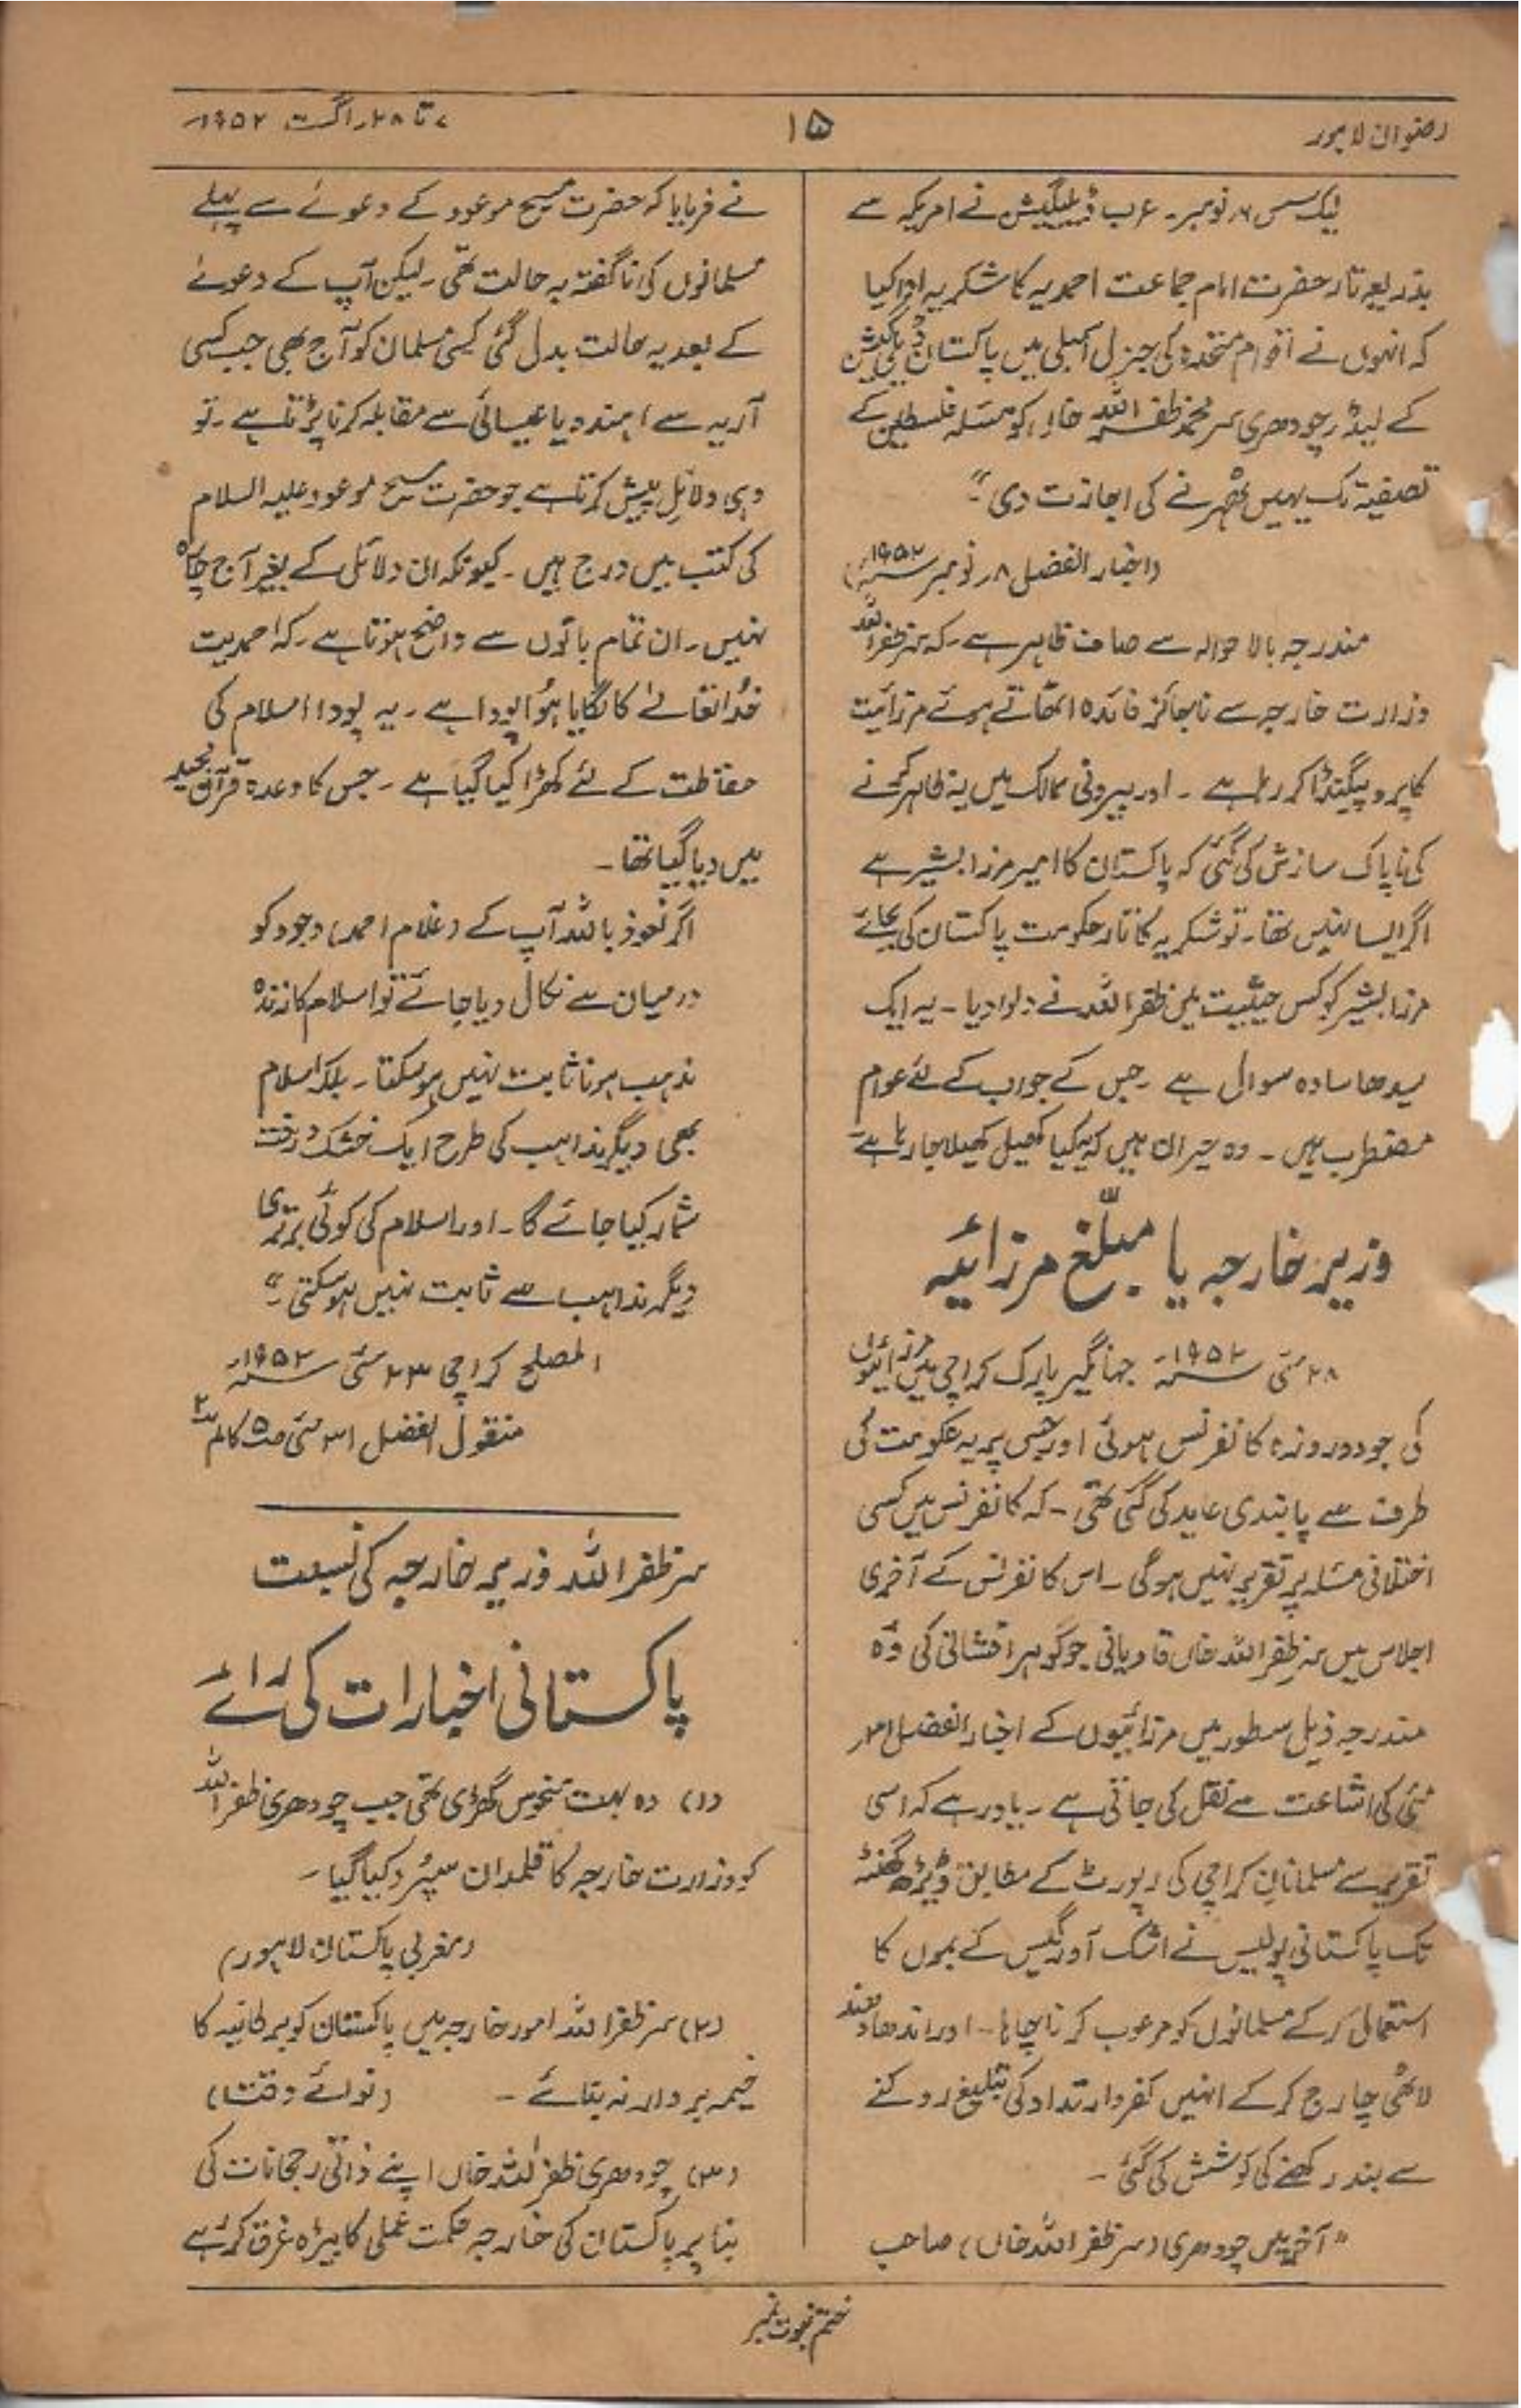 رضوان لاہور
۱۵
۷ تا ۲۸ اگست ۱۹۵۲ء
لیک سس ۶ نومبر۔ عرب ڈیلیگیشن نے امریکہ سے
بذریعہ تار حضرت امام جماعت احمدیہ کا شکریہ ادا کیا
کہ انہوں نے اقوام متحدہ کی جنرل اسمبلی میں پاکستان ڈیلیگیشن
کے لیڈر چودھری سر محمد ظفر اللہ خاں کو مسئلہ فلسطین کے
تصفیہ تک یہیں ٹھہرنے کی اجازت دی"۔
(اخبار الفضل ۸ر نومبر ۱۹۵۲ء)
مندرجہ بالا حوالہ سے صاف ظاہر ہے۔ کہ سر ظفر اللہ
وزارت خارجہ سے ناجائز فائدہ اٹھاتے ہوئے مرزائیت
کا پروپیگنڈا کر رہا ہے ۔ اور بیرونی ممالک میں یہ ظاہر کرنے
کی ناپاک سازش کی گئی کہ پاکستان کا امیر مرزا بشیر ہے
اگر ایسا نہیں تھا۔ تو شکریہ کا تار حکومت پاکستان کی بجائے
مرزا بشیر کو کس حیثیت میں ظفر اللہ نے دلوا دیا ۔ یہ ایک
سیدھا سادہ سوال ہے ۔ جس کے جواب کے لئے عوام
مضطرب ہیں ۔ وہ حیران ہیں کہ یہ کیا کھیل کھیلا جا رہا ہے
وزیر خارجہ یا مبلّغ مرزائیہ
۲۸ مئی ۱۹۵۲ء جہانگیر پارک کراچی میں مرزائیوں
کی جو دو روزہ کانفرنس ہوئی اور جس پر یہ حکومت کی
طرف سے پابندی عاید کی گئی تھی ۔ کہ کانفرنس میں کسی
اختلافی مسئلہ پر تقریر نہیں ہوگی ۔ اس کانفرنس کے آخری
اجلاس میں سر ظفر اللہ خاں قادیانی جو گوہر افشانی کی وہ
مندرجہ ذیل سطور میں مرزائیوں کے اخبار الفضل ۳۱
مئی کی اشاعت سے نقل کی جاتی ہے ۔ یاد رہے کہ اسی
تقریر سے مسلمانان کراچی کی رپورٹ کے مطابق ڈیڑھ گھنٹہ
تک پاکستانی پولیس نے اشک آور گیس کے بموں کا
استعمال کر کے مسلمانوں کو مرعوب کرنا چاہا ۔ اور اندھا دھند
لاٹھی چارج کر کے انہیں کفر و ارتداد کی تبلیغ روکنے
سے بند رکھنے کی کوشش کی گئی ۔
"آخر میں چودھری (سر ظفر اللہ خاں) صاحب
نے فرمایا کہ حضرت مسیح موعود کے دعوئے سے پہلے
مسلمانوں کی ناگفتہ بہ حالت تھی ۔ لیکن آپ کے دعوئے
کے بعد یہ حالت بدل گئی کسی مسلمان کو آج بھی جب کسی
آریہ سے ہندو یا عیسائی سے مقابلہ کرنا پڑتا ہے ۔ تو
وہی دلائل پیش کرتا ہے جو حضرت مسیح موعود علیہ السلام
کی کتب میں درج ہیں ۔ کیونکہ ان دلائل کے بغیر آج چارہ
نہیں ۔ ان تمام باتوں سے واضح ہوتا ہے ۔ کہ احمدیت
خدا تعالےٰ کا لگایا ہُوا پودا ہے ۔ یہ پودا اسلام کی
حفاظت کے لئے کھڑا کیا گیا ہے ۔ جس کا وعدہ قرآن مجید
میں دیا گیا تھا ۔
اگر نعوذ باللہ آپ کے (غلام احمد) وجود کو
درمیان سے نکال دیا جائے تو اسلام کا زندہ
مذہب ہونا ثابت نہیں ہو سکتا ۔ بلکہ اسلام
بھی دیگر مذاہب کی طرح ایک خشک درخت
شمار کیا جائے گا ۔ اور اسلام کی کوئی برتری
دیگر مذاہب سے ثابت نہیں ہو سکتی ۔"
المصلح کراچی ۲۳ مئی ۱۹۵۲ء
منقول الفضل ۳۱ مئی ص۵ کالم ۲
سر ظفر اللہ وزیر خارجہ کی نسبت
پاکستانی اخبارات کی رائے
(۱) وہ بہت منحوس گھڑی تھی جب چودھری ظفر اللہ
کو وزارت خارجہ کا قلمدان سپُرد کیا گیا ۔
(مغربی پاکستان لاہور)
(۲) سر ظفر اللہ امور خارجہ میں پاکستان کو برطانیہ کا
خیمہ بردار نہ بنائے ۔ (نوائے وقت)
(۳) چودھری ظفر اللہ خاں اپنے ذاتی رجحانات کی
بنا پر پاکستان کی خارجہ حکمت عملی کا بیڑہ غرق کر رہے
ختم نبوت نمبر